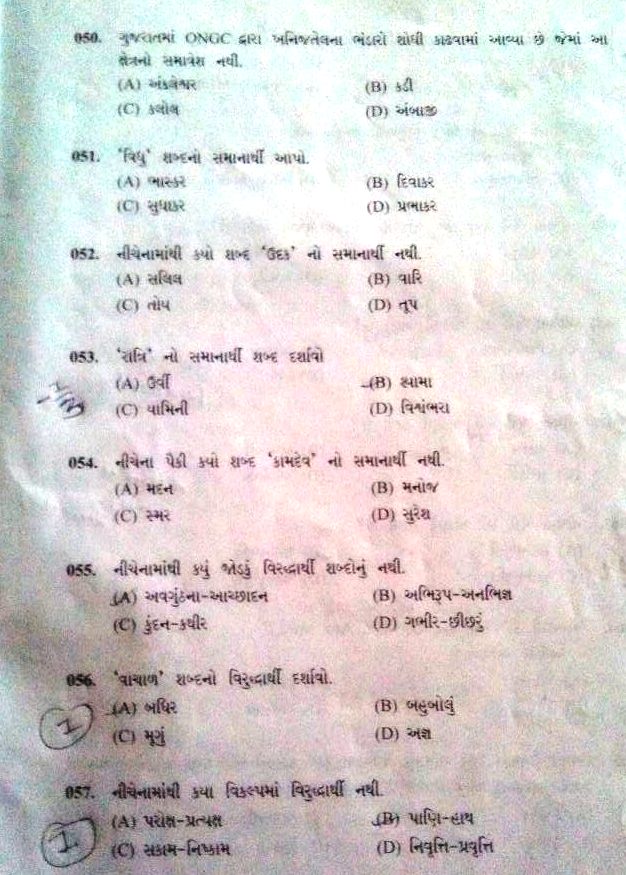 050. ગુજરાતમાં ONGC દ્વારા ખનિજતેલના ભંડારો શોધી કાઢવામાં આવ્યા છે જેમાં આ
ક્ષેત્રનો સમાવેશ નથી.
(A) અંકલેશ્વર (B) કડી
(C) કલોલ (D) અંબાજી
051. 'વિધુ' શબ્દનો સમાનાર્થી આપો.
(A) ભાસ્કર (B) દિવાકર
(C) સુધાકર (D) પ્રભાકર
052. નીચેનામાંથી કયો શબ્દ 'ઉદક' નો સમાનાર્થી નથી.
(A) સલિલ (B) વારિ
(C) તોય (D) તૂપ
053. 'રાત્રિ' નો સમાનાર્થી શબ્દ દર્શાવો
(A) ઉર્વી (B) શ્યામા
(C) યામિની (D) વિશ્વંભરા
054. નીચેના પૈકી કયો શબ્દ 'કામદેવ' નો સમાનાર્થી નથી.
(A) મદન (B) મનોજ
(C) સ્મર (D) સુરેશ
055. નીચેનામાંથી કયું જોડકું વિરુદ્ધાર્થી શબ્દોનું નથી.
(A) અવગુંઠના-આચ્છાદન (B) અભિરૂપ-અનભિજ્ઞ
(C) કુંદન-કથીર (D) ગભીર-છીછરું
056. 'વાચાળ' શબ્દનો વિરુદ્ધાર્થી દર્શાવો.
(A) બધિર (B) બહુબોલું
(C) મૂગું (D) અજ્ઞ
057. નીચેનામાંથી કયા વિકલ્પમાં વિરુદ્ધાર્થી નથી.
(A) પરોક્ષ-પ્રત્યક્ષ (B) પાણિ-હાથ
(C) સકામ-નિષ્કામ (D) નિવૃત્તિ-પ્રવૃત્તિ